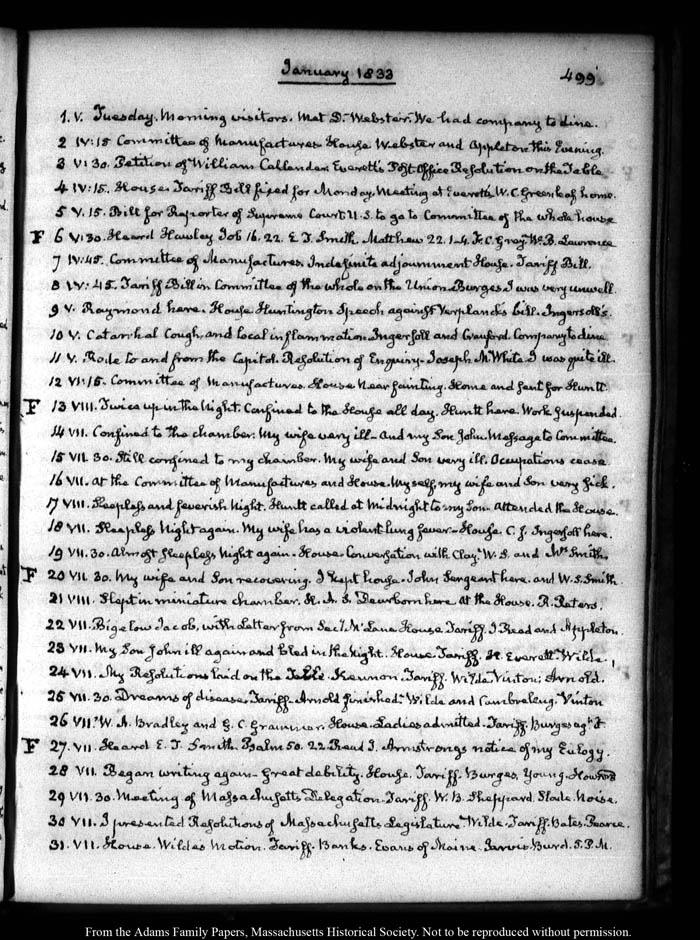 January 1833
499
1. V. Tuesday. Morning visitors. Met D. Webster. We had company to dine.
2 IV:15 Committee of Manufactures House Webster and Appleton this Evening.
3 V:30. Petition of William Callender. Everett's Post Office Resolution on the Table
4 IV:15. House. Tariff Bill fixed for Monday. Meeting at Everett's W. C. Greenleaf home.
5 V.15. Bill for Reporter of Supreme Court U.S. to go to Committee of the whole house
F 6 V:30. Heard Hawley Job 16.22. E. T. Smith. Matthew 22.1-4. F. C. Gray. Wm. B. Lawrence
7 IV:45. Committee of Manufactures. Indefinite adjournment House. Tariff Bill.
8 IV:45. Tariff Bill in Committee of the whole on the Union. Burges. I was very unwell.
9 V. Raymond here. House Huntington Speech against Verplanck's bill. Ingersoll's.
10 V. Catarrhal Cough, and local inflammation. Ingersoll and Crawford. Company to dine
11 V. Rode to and from the Capitol. Resolution of Enquiry. Joseph M. White. I was quite ill.
12 VI:15. Committee of Manufactures. House. Near fainting. Home and sent for Huntt
F 13 VIII. Twice up in the Night. Confined to the House all day. Huntt here. Work suspended.
14 VII. Confined to the chamber. My wife very ill – and my Son John. Message to Committee.
15 VII. 30. Still confined to my chamber. My wife and Son very ill. Occupations cease
16 VII. At the Committee of Manufactures and House. Myself, my wife and Son very sick.
17 VIII. Sleepless and feverish Night. Huntt called at midnight to my Son. Attended the House.
18 VII. Sleepless Night again. My wife has a violent lung fever – House. C. J. Ingersoll here.
19 VII. 30. Almost sleepless Night again. House. Conversation with Clay. W. S. and Mrs. Smith.
F 20 VII. 30. My wife and Son recovering. I kept house. John Sergeant here. and W. S. Smith
21 VIII. Slept in miniature chamber. H. A. S. Dearborn here At the House. R. Peters.
22 VII. Bigelow Jacob, with Letter from Secy. McLane. House. Tariff. J Reed and Appleton.
23 VII. My Son John ill again and bled in the Night. House. Tariff. H. Everett. Wilde.
24 VII. My Resolutions laid on the Table. Kennon. Tariff. Wilde. Vinton; Arnold.
25 VII. 30. Dreams of disease. Tariff. Arnold finished. Wilde and Cambreleng. Vinton
26 VII. W. A. Bradley and G. C. Grammer. House. Ladies admitted. Tariff. Burges agt. it
F 27. VII. Heard E. T. Smith. Psalm 50.22. Read J. Armstrong's notice of my Eulogy.
28 VII. Began writing again. Great debility. House. Tariff. Burges. Young. Howard
29 VII. 30. Meeting of Massachusetts Delegation. Tariff. W. B. Sheppard. Slade. Noise.
30 VII. I presented Resolutions of Massachusetts Legislature. Wilde. Tariff. Bates. Pearce.
31. VII. House. Wilde's Motion. Tariff. Banks. Evans of Maine. Jarvis. Burd. S. P. M.
From the Adams Family Papers, Massachusetts Historical Society. Not to be reproduced without permission.